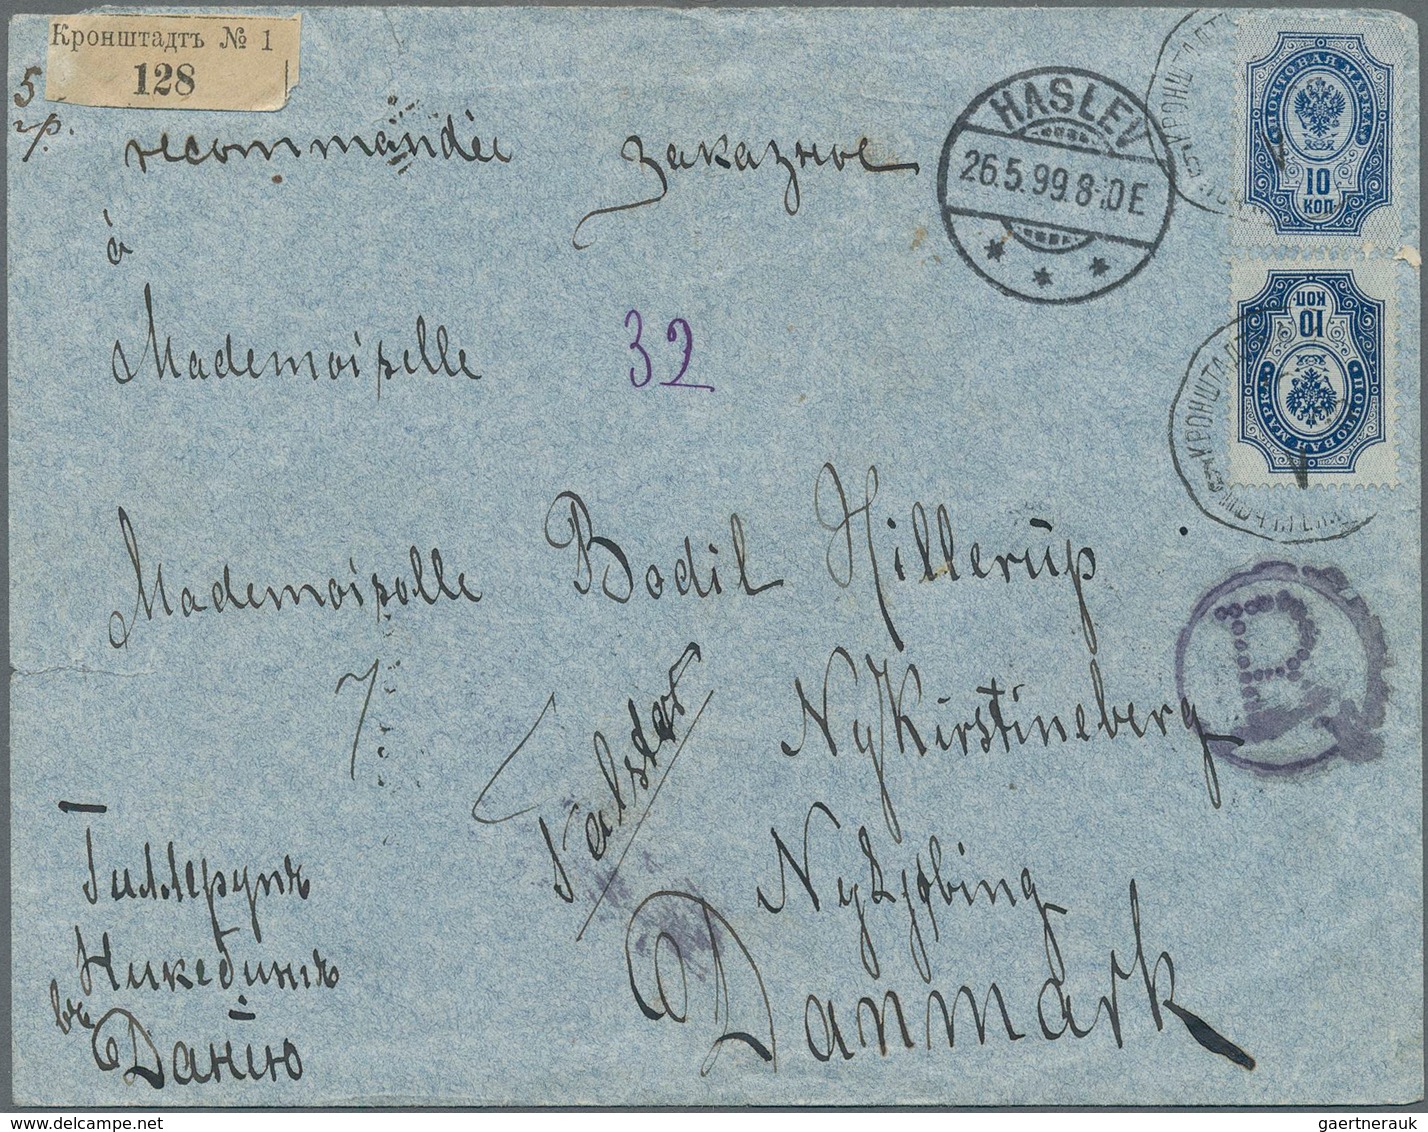 Кронштадтъ № 1
128
5
гр.
recommandée заказное
HASLEV
26.5.99.8-0E
ПОЧТОВАЯ МАРКА
10
КОП
ПОЧТОВАЯ МАРКА
10
КОП
КРОНШТАДТ
КРОНШТАД
à
Mademoiselle
32
Mademoiselle Bodil Hillerup
R
7
Falster
NyKirstineberg
Nykjøbing
Danmark
Гиллерупъ
Никебингъ
въ
Данію
gaertnerauk